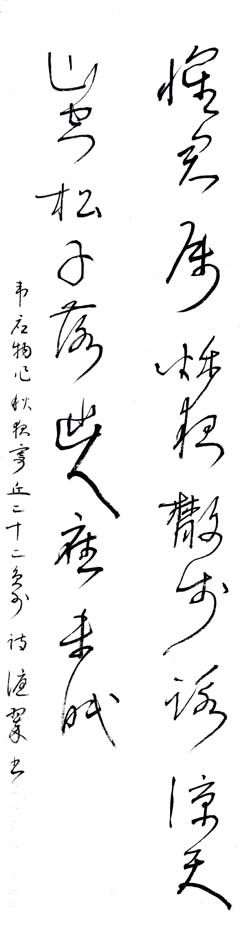 懷君属秋夜散步詠涼天
山空松子落幽人應未眠
韦应物作秋夜寄丘二十二员外诗 书